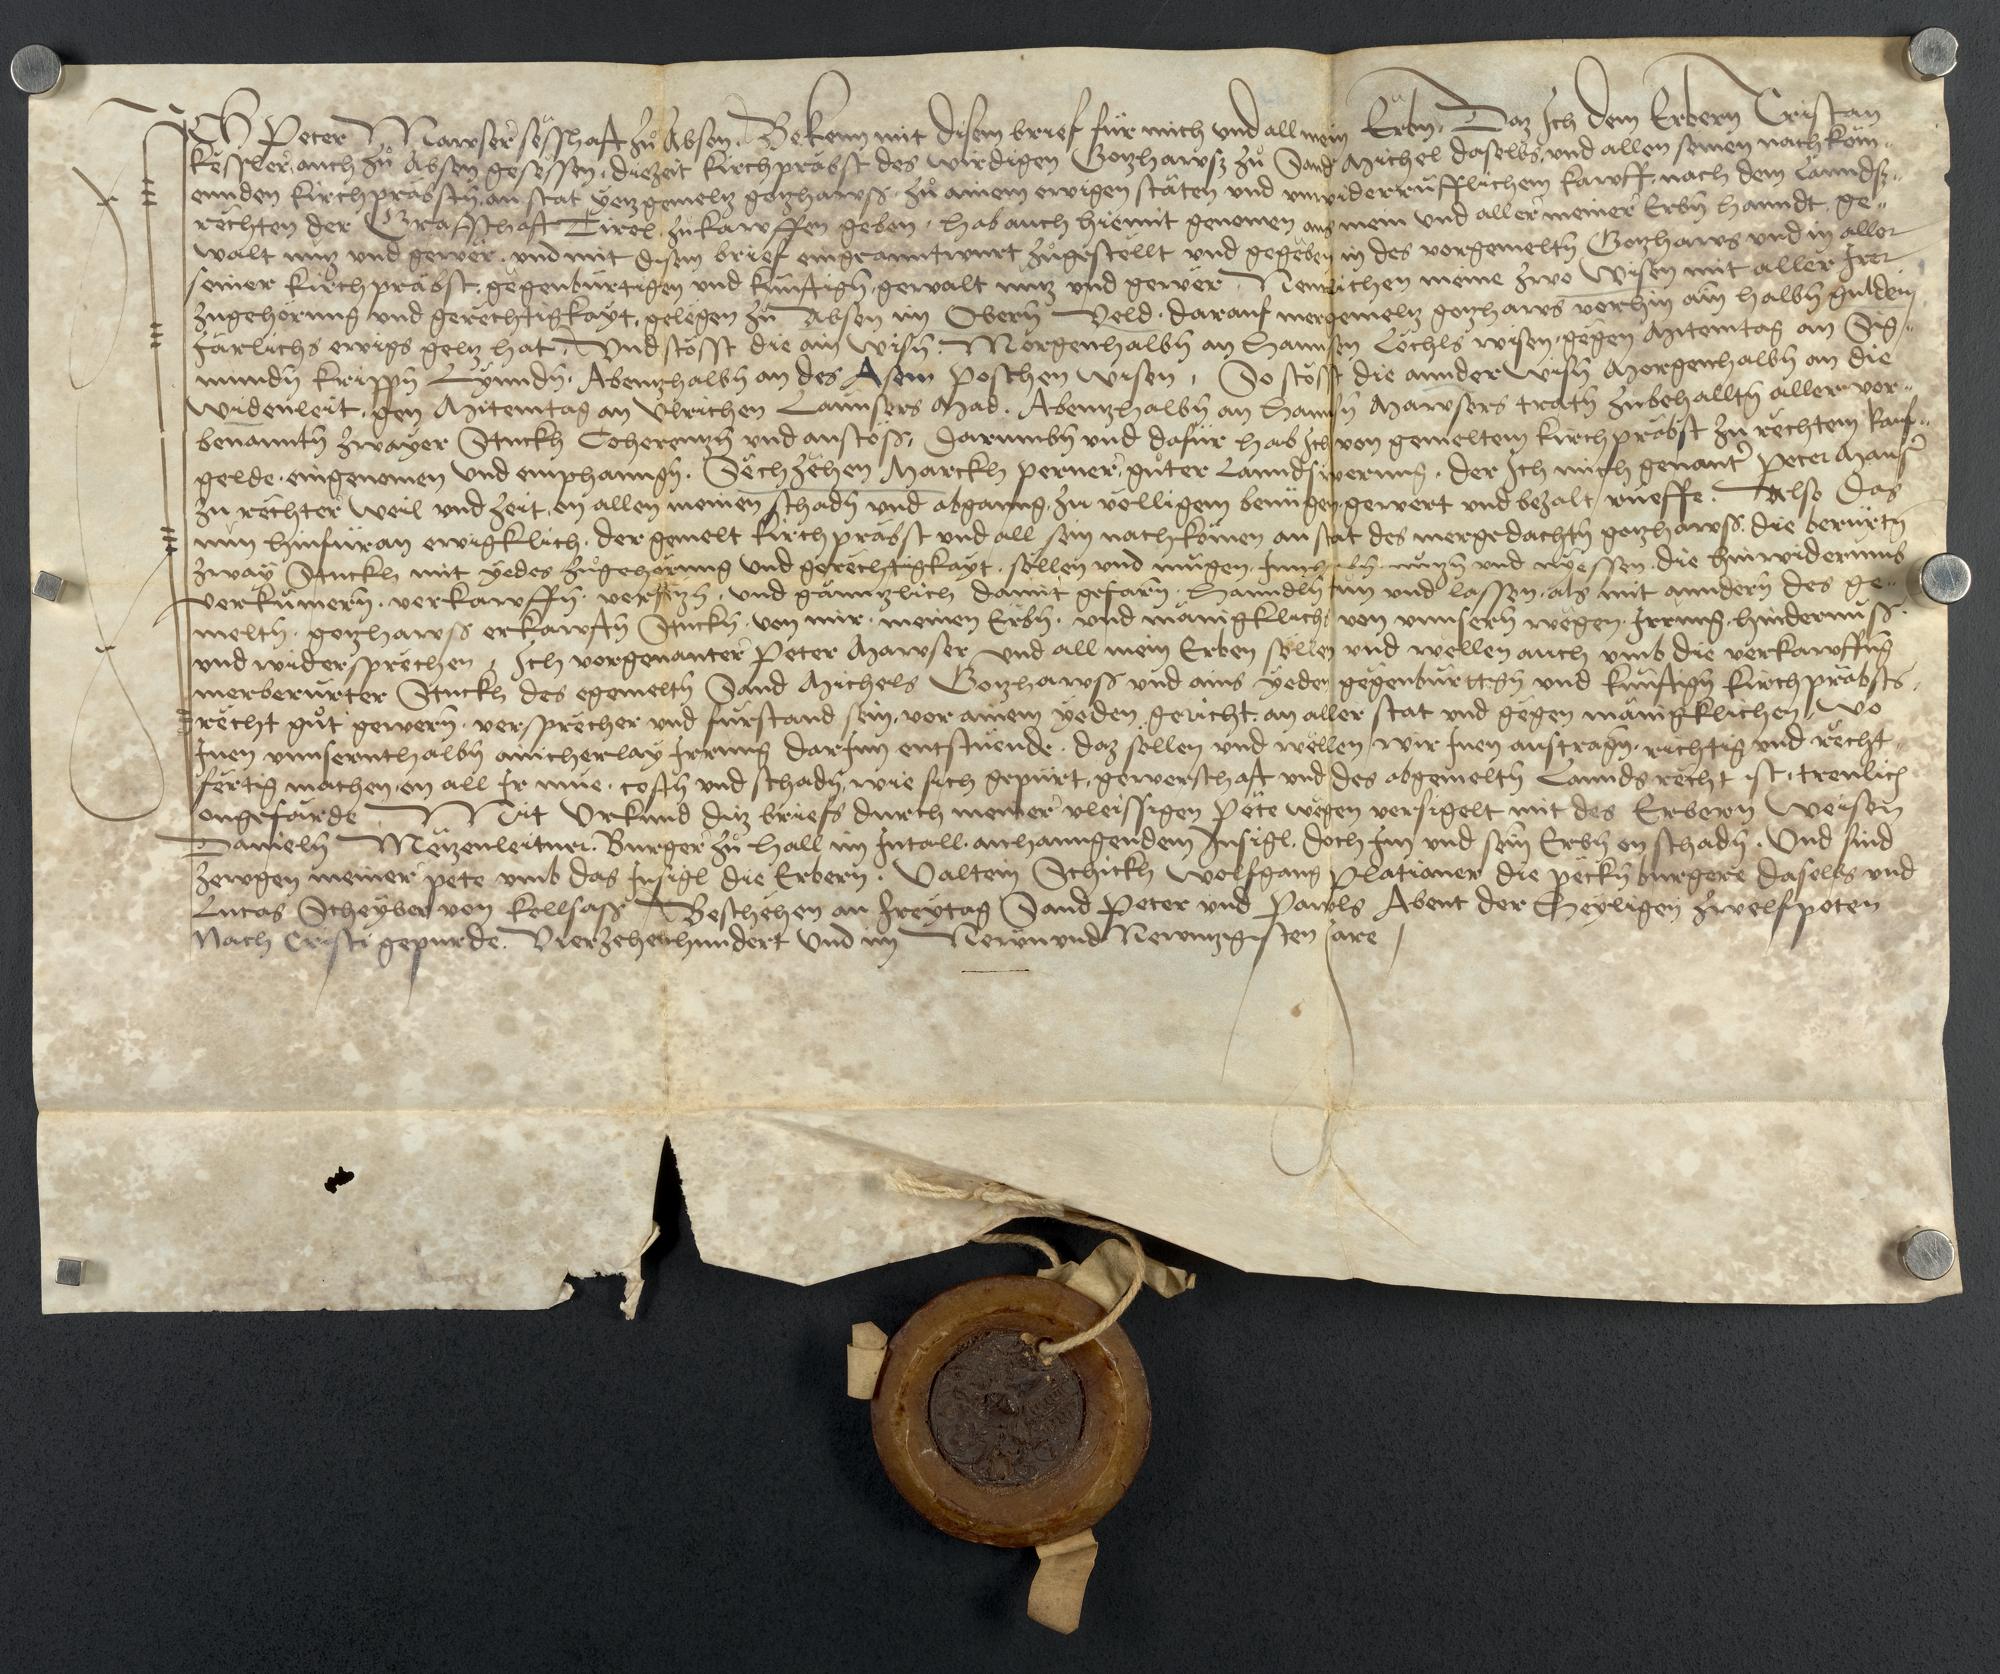 Ich Peter Mawser sesshaft zů Absen. Bekenn mit disem brief für mich und all mein Erbn. Daz Ich dem Erbern Cristan
kessler, auch zů Absen gesessen, diezeit kirchpräbst des wirdigen Gotzhawsz zů Sand Michel daselbs, und allen seinen nachköm-
ennden kirchpräbstn, an stat yetzgemeltz gotzhawss, zů ainem ewigen stäten und unwiderrüfflichem kawff, nach dem Lanndsz-
rechten der Graffschaft Tirol zůkawffen geben, hab auch hiemit genomen aus mein und aller meiner Erbn hanndt, ge-
walt nutz und gewer, und mit disem brief eingeanntwurt zůgestellt und gegeben in des vorgemeltn Gotzhaws und in aller
seiner kirchpräbst, gegenbürtigen und künftign, gewalt nutz und gewer, Nemlichen meine zwo wisen mit aller Irer
zugehörung und gerechtigkayt, gelegen zů Absen im Obern Veld, darauf mergemeltz gotzhaws vorhin ain halbn guldein
järlichs ewigs geltz hat, Und stösst die ain wisn, Morgenhalbn an Hannsen Löchls wisen, gegen Mitemtag an Sig-
mundn krippn Lynndn, Abentzhalbn an des Asem Poschen wisen, So stösst die annder wisn Morgenhalbn an die
Widenleit, gen Mitemtag an Ulrichen Launsers Mad, Abentzhalbn an Hannsn Mawsers tratn zubehalltn aller vor-
benanntn zwayer Stuckh Coherentzn und anstöss, darumbn und dafür hab Ich von gemeltem kirchpräbst zu rechtem kauf-
gelde, eingenomen und emphanngn, Sechzehen Marckh perner, gůter Lanndswerung, der Ich mich genanter Peter Mauser
zu rechter weil und zeit, on allen meinen schadn und abganng, zu volligem benügen, gewert und bezalt rüeffe. Also das
nun hinfüran ewigklich, der gemelt kirchpräbst und all sein nachkömen an stat des mergedachtn gotzhawss, die berürtn
zway Stuckh mit yedes zůgehörung und gerechtigkayt, söllen und mügen, Innhabn, nutzn und nyessen, die hinwiderumb
verkümern, verkawffn, versetzn, und gänntzlich damit gefarn, Hanndln tun und lassen, als mit anndern des ge-
meltn, gotzhawss erkawftn Stuckn, von mir, meinen Erbn, und mänigklichs von unnsern wegen, Irrung, hindernuss
und widersprechen, Ich vorgenanter Peter Mawser und all mein Erben söllen und wellen auch umb die verkawffng
merberürter Stuckh des egemeltn Sand Michels Gotzhawss und ains yeden gegenbürttign und künftign kirchpräbsts,
recht gůt gewern, versprecher und fürstand sein, vor ainem yeden gericht, an aller stat und gegen mänigklichen, Wo
Inen unnsernthalbn ainicherlay Irrung darInn entstüende, daz söllen und wellen wir Inen austragn, richtig und recht-
fertig machen, on all Ir müe, costn und schadn, wie sich gepürt, gewerschaft und des obgemeltn Lannds recht ist, treulich
ongefärde, Mit Urkund ditz briefs durch meiner vleissigen Pete wegen versigelt mit des Erbern Weisen
Danieln Metzenleitner, Burger zů Hall im Intall, anhanngendem Insigl, doch Im und sein Erbn on schadn. Und sind
zewgen meiner pete umb das Insigl die Erbern, Valtein Schickh Wolfgang Plationer die peckn burgere daselbs und
Lucas Scheyber von kollsass, Beschehen an Freytag Sand Peter und Pawls Abent der Heyligen zwelfpoten
Nach Cristi gepurde, Vierzehenhundert Und im Newnundnewntzigisten Jare